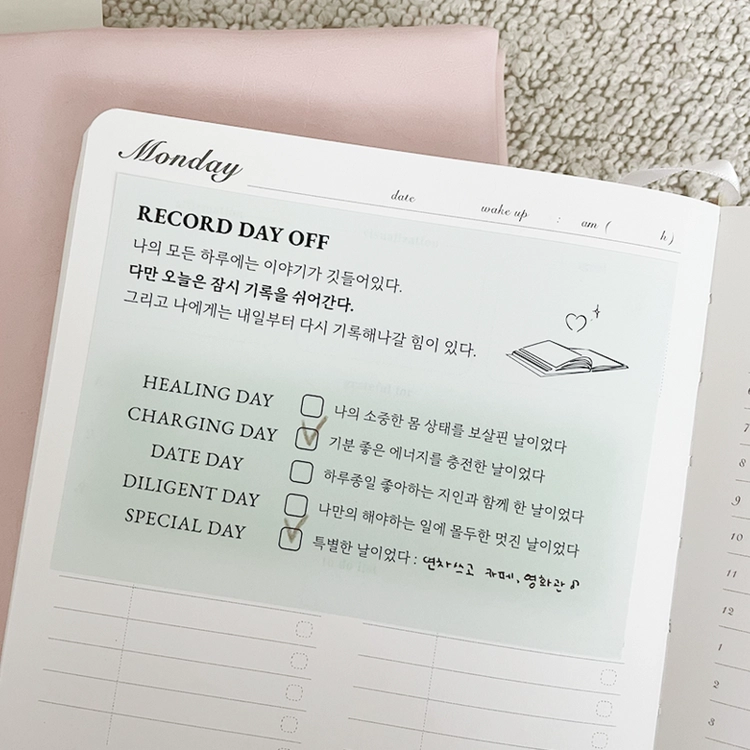 Monday
date wake up : am ( h)
RECORD DAY OFF
나의 모든 하루에는 이야기가 깃들어있다.
다만 오늘은 잠시 기록을 쉬어간다.
그리고 나에게는 내일부터 다시 기록해나갈 힘이 있다.
HEALING DAY 나의 소중한 몸 상태를 보살핀 날이었다
CHARGING DAY 기분 좋은 에너지를 충전한 날이었다
DATE DAY 하루종일 좋아하는 지인과 함께 한 날이었다
DILIGENT DAY 나만의 해야하는 일에 몰두한 멋진 날이었다
SPECIAL DAY 특별한 날이었다 : 연차쓰고 카페, 영화관♪
7
8
9
10
11
12
1
2
3